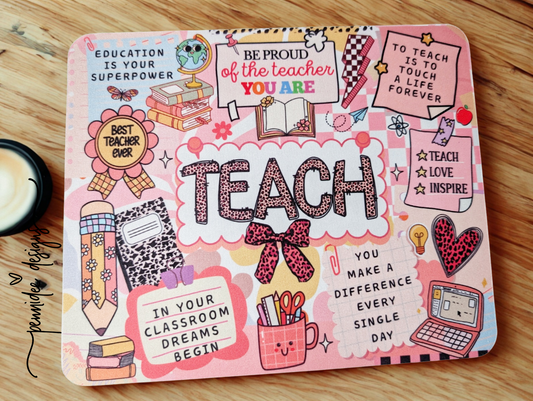 EDUCATION
IS YOUR
SUPERPOWER
BE PROUD
of the teacher
YOU ARE
TO TEACH
IS TO
TOUCH
A LIFE
FOREVER
BEST
TEACHER
EVER
TEACH
LOVE
INSPIRE
TEACH
IN YOUR
CLASSROOM
DREAMS
BEGIN
YOU
MAKE A
DIFFERENCE
EVERY
SINGLE
DAY